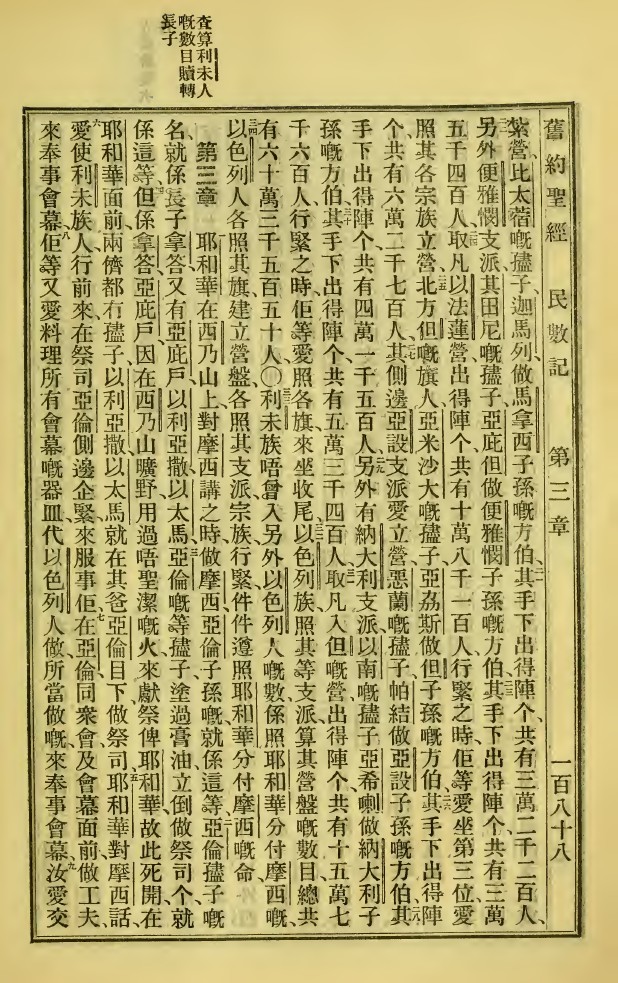 查算利未人
嘅數目贖轉
長子
舊約聖經 民數記 第三章 一百八十八
紮營、比太蓿嘅孻子、迦馬列做馬拿西子孫嘅方伯、其手下出得陣个、共有三萬二千二百人、
另外便雅憫支派、其田尼嘅孻子、亞庇但做便雅憫子孫嘅方伯、其手下出得陣个、共有三萬
五千四百人、取凡以法蓮營出得陣个、共有十萬八千一百人、行緊之時、佢等愛坐第三位、愛
照其各宗族立營、北方但嘅旗人、亞米沙大嘅孻子、亞希斯做但子孫嘅方伯、其手下出得陣
个、共有六萬二千七百人、其側邊亞設支派愛立營、恶蘭嘅孻子、帕結做亞設子孫嘅方伯、其
手下出得陣个、共有四萬一千五百人、另外有納大利支派、以南嘅孻子、亞希喇做納大利子
孫嘅方伯、其手下出得陣个、共有五萬三千四百人、取凡入但嘅營出得陣个、共有十五萬七
千六百人、行緊之時、佢等愛照各旗來坐收尾、以色列族照其等支派、算其營盤嘅數目、總共
有六十萬三千五百五十人、〇利未族唔曾入另外以色列人嘅數、係照耶和華分付摩西嘅、
以色列人各照其旗建立營盤、各照其支派宗族行緊、件件遵照耶和華分付摩西嘅命、
第三章 耶和華在西乃山上對摩西講之時、做摩西亞倫子孫嘅、就係這等、亞倫孻子嘅
名、就係長子拿答、又有亞庇戶、以利亞撒、以太馬、亞倫嘅等孻子、塗過膏油、立倒做祭司个、就
係這等、但係拿答亞庇戶、因在西乃山曠野用過唔聖潔嘅火、來獻祭俾耶和華、故此死開在
耶和華面前、兩儕都冇孻子、以利亞撒以太馬、就在其爸亞倫目下、做祭司、耶和華對摩西話、
愛使利未族人、行前來在祭司亞倫側邊企緊、來服事佢、在亞倫同眾會及會幕面前、做工夫、
來奉事會幕、佢等又愛料理所有會幕嘅器皿、代以色列人做所當做嘅、來奉事會幕、汝愛交